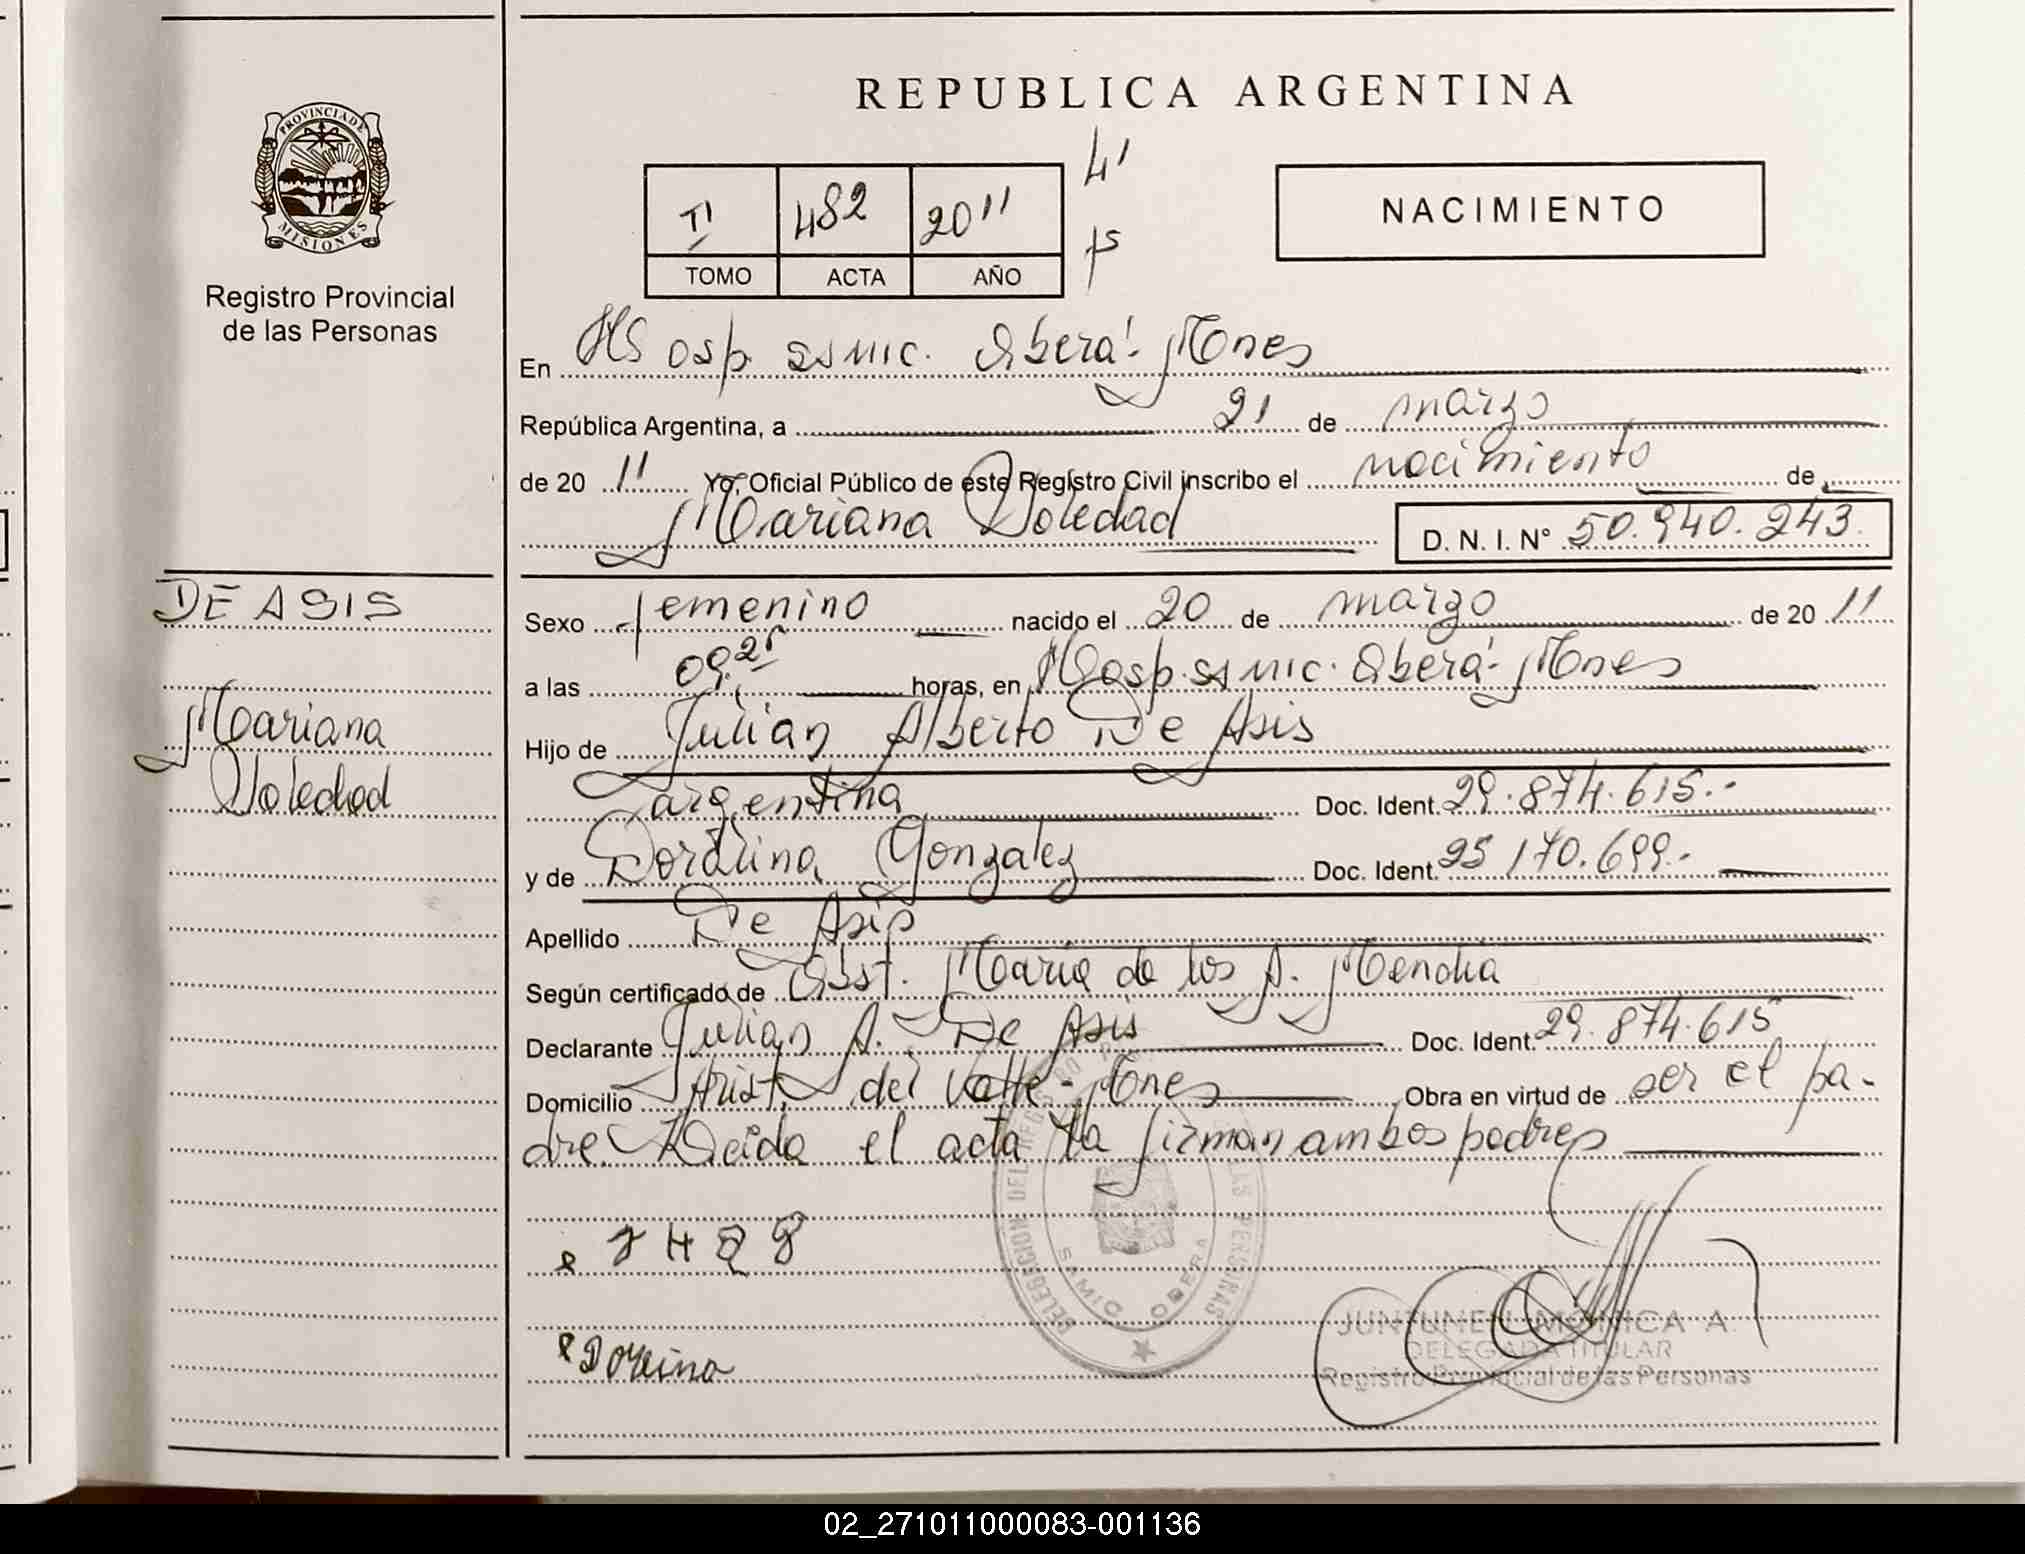 REPUBLICA ARGENTINA
PROVINCIA DE
MISIONES
Registro Provincial
de las Personas
T I 482 2011
TOMO ACTA AÑO
NACIMIENTO
En Hosp. ssmic. Oberá - Mnes
República Argentina, a 21 de marzo
de 20 11 Yo, Oficial Público de este Registro Civil inscribo el nacimiento de
Mariana Soledad D. N. I. Nº 50.940.243.
DE ASIS
Mariana
Soledad
Sexo femenino nacido el 20 de marzo de 20 11
a las 09:25 horas, en Hosp. ssmic. Oberá - Mnes
Hijo de Julian Alberto De Asis
argentina Doc. Ident. 29.874.615.-
y de Gonzalez Doc. Ident. 95 170.699.-
Apellido De Asis
Según certificado de Obst. Maria de los A. Mendia
Declarante Julian A. De Asis Doc. Ident. 29.874.615
Domicilio Arist. del Valle - Mnes Obra en virtud de ser el pa-
dre. Leida el acta la firman ambos padres
DELEGACION DEL REGISTRO LAS PERSONAS
SAMIC OBERA
JUNTUNEN MONICA A.
DELEGADA TITULAR
Registro Provincial de las Personas
02_271011000083-001136